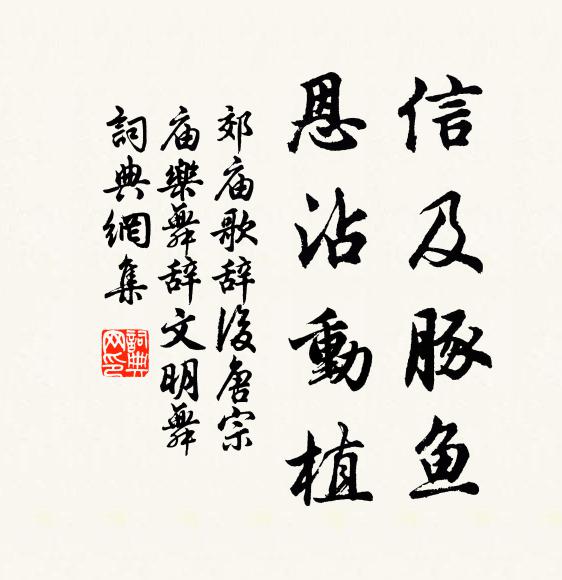 信及豚鱼
恩沾動植
郊庙歌辞後唐宗
庙樂舞辞文明舞
詞典網集
詞典
网印